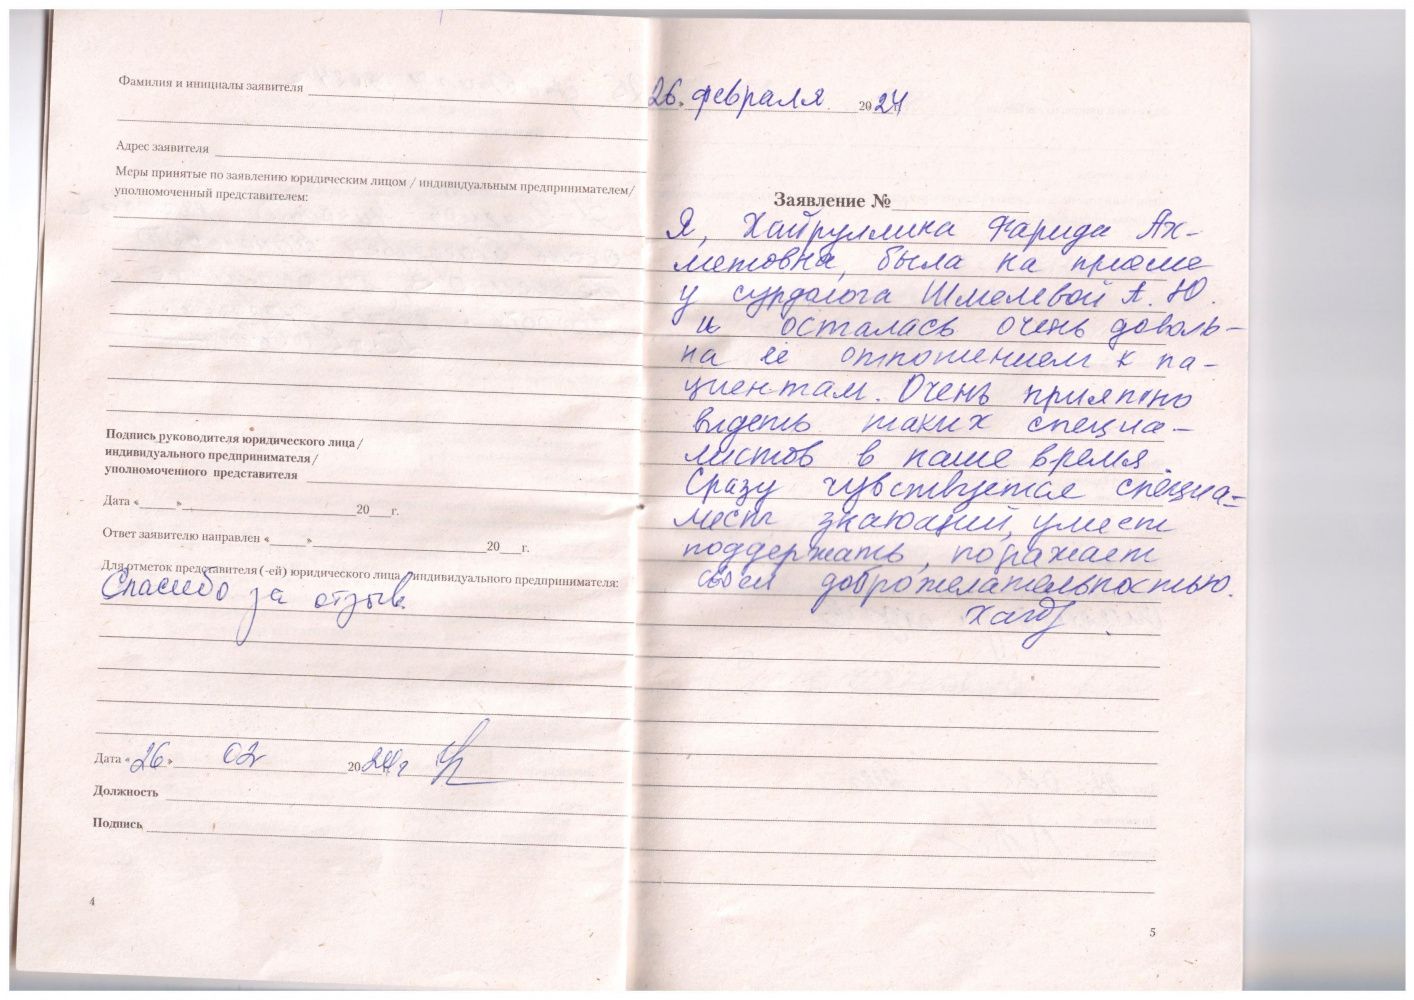 Фамилия и инициалы заявителя
Адрес заявителя
Меры принятые по заявлению юридическим лицом / индивидуальным предпринимателем/
уполномоченный представителем:
Подпись руководителя юридического лица /
индивидуального предпринимателя /
уполномоченного представителя
Дата «____»____20__г.
Ответ заявителю направлен «____»____20__г.
Для отметок представителя (-ей) юридического лица / индивидуального предпринимателя:
Спасибо за отзыв.
Дата «26» 02 2024г
Должность
Подпись
4
26» февраля 2024
Заявление №
Я, Хайруллина Фарида Ах-
метовна, была на приеме
у сурдолога Шмелевой А. Ю.
и осталась очень доволь-
на её отношением к па-
циентам. Очень приятно
видеть таких специа-
листов в наше время.
Сразу чувствуется специа-
лист знающий, умеет
поддержать, поражает
своей доброжелательностью.
5